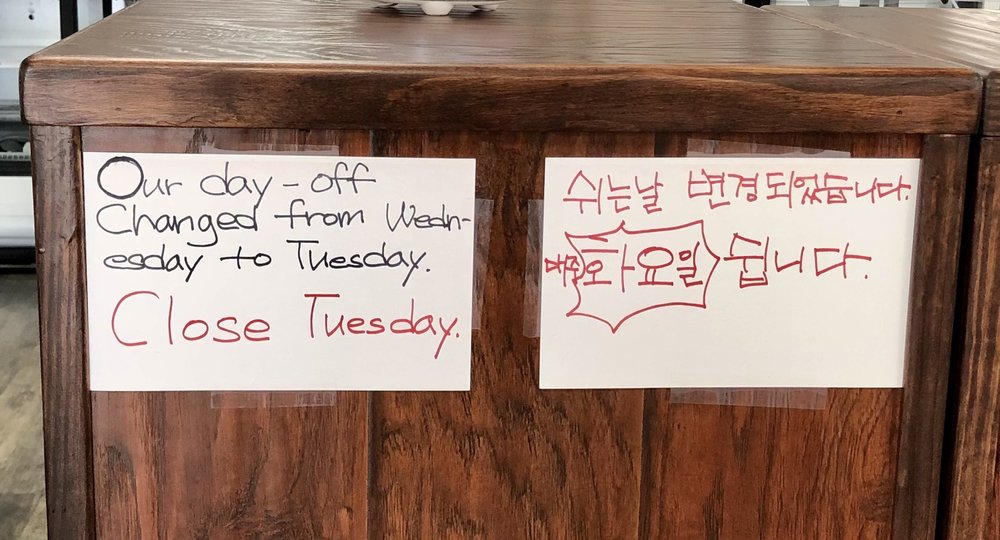 Our day-off
Changed from Wedn-
esday to Tuesday.
Close Tuesday.
쉬는날 변경되었습니다.
매주 화요일 쉽니다.